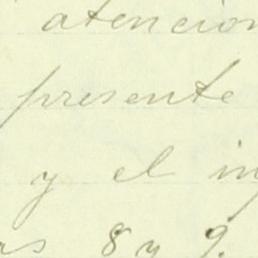 atencion
presente
y el in
s 8 y 9.